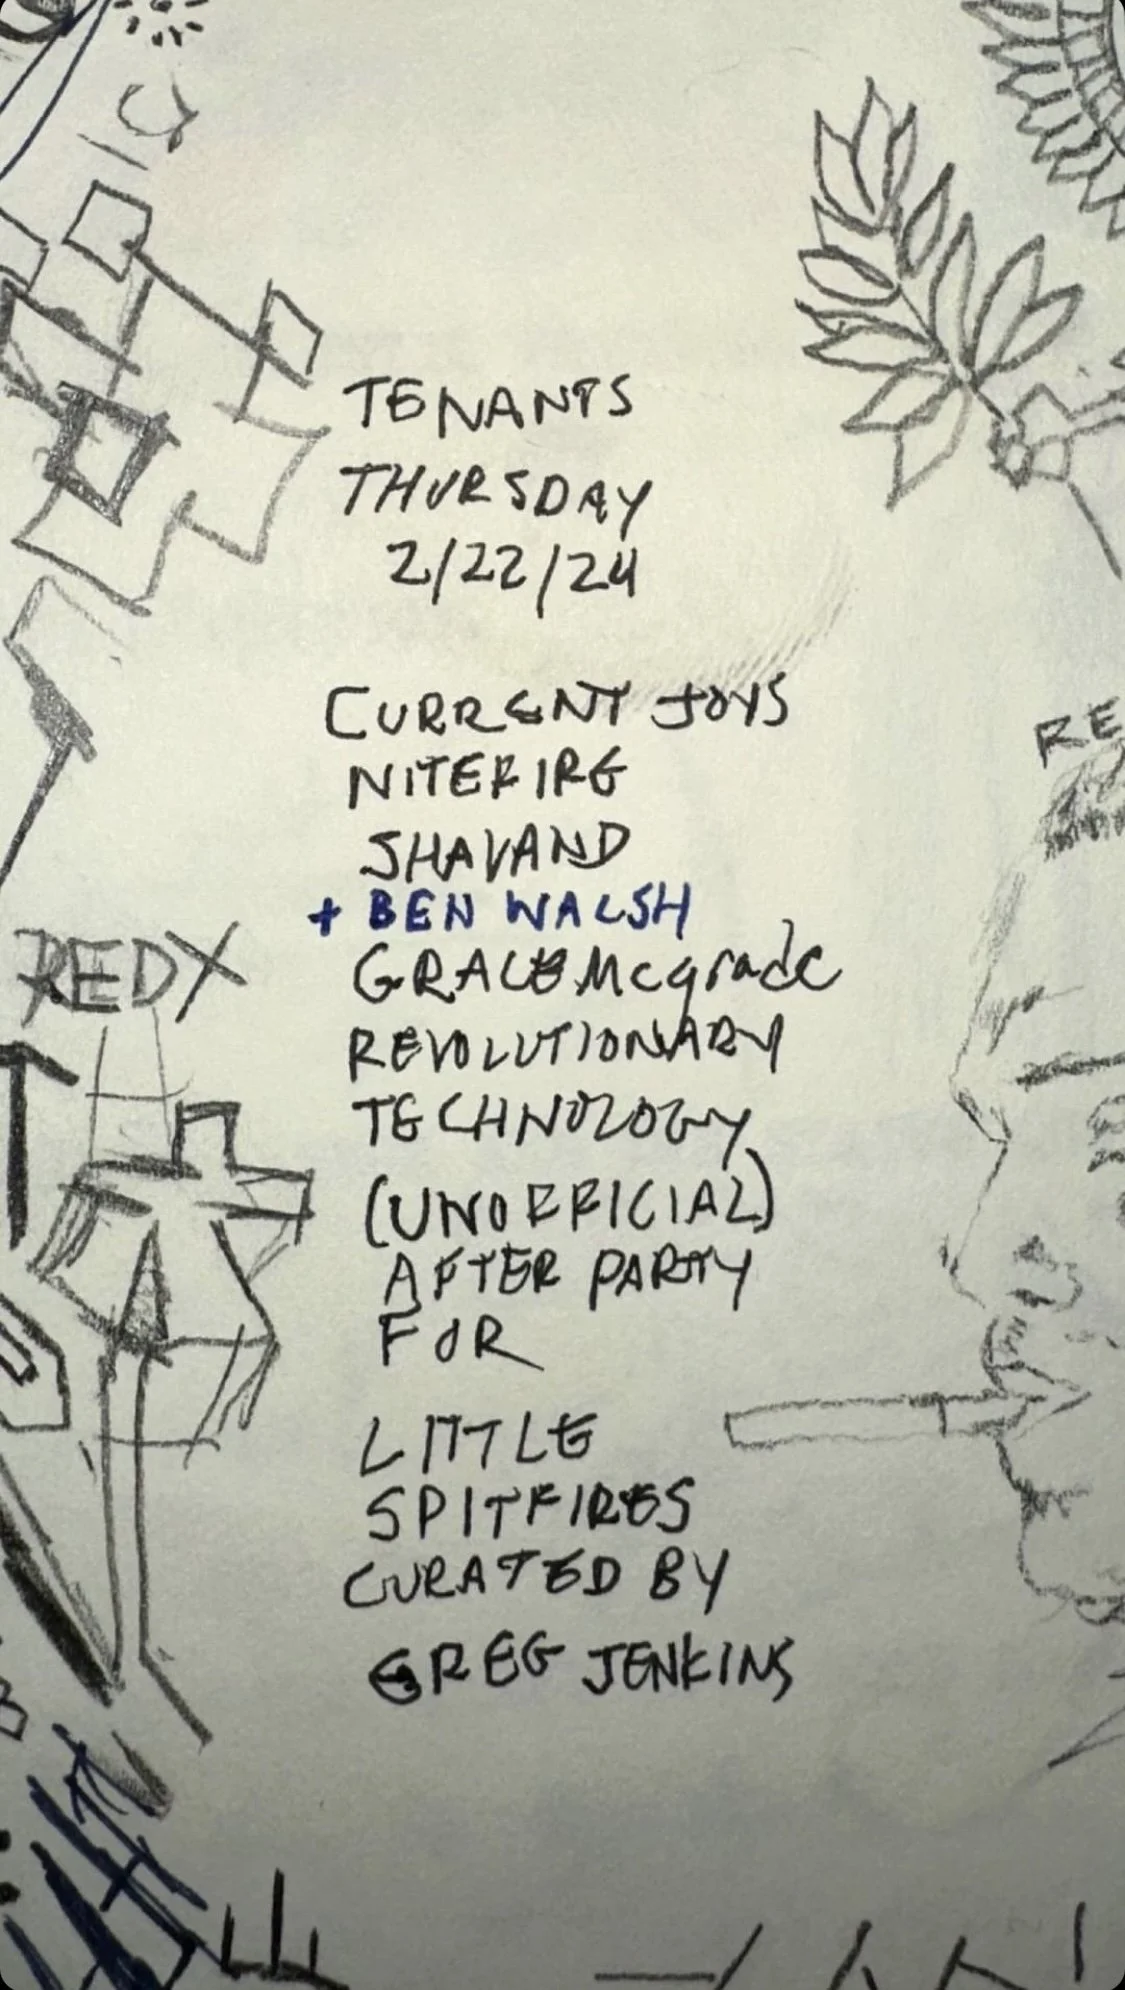 TENANTS
THURSDAY
2/22/24
CURRENT JOYS
NITEFIRE
SHAVAND
+ BEN WALSH
GRACE McgradE
REVOLUTIONARY
TECHNOLOGY
(UNOFFICIAL)
AFTER PARTY
FOR
LITTLE
SPITFIRES
CURATED BY
GREG JENKINS
REDX
RE